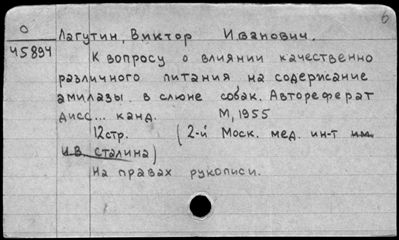 б
О
45894
Лагутин, Виктор Иванович.
К вопросу о влиянии качественно
различного питания на содержание
амилазы в слюне собак. Автореферат
дисс... канд. М, 1955
12стр. (2-й Моск. мед. ин-т им.
И.В. Сталина)
На правах рукописи.